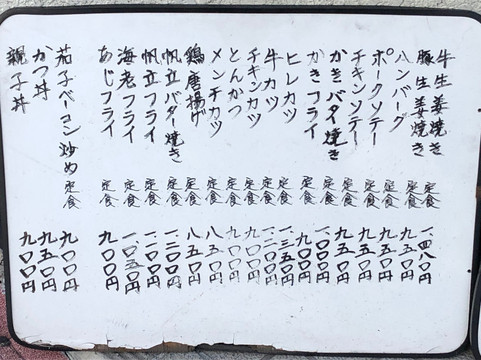 牛生姜焼き 定食 一、四八〇円
豚生姜焼き 定食 九五〇円
ハンバーグ 定食 九五〇円
ポークソテー 定食 九五〇円
チキンソテー 定食 九五〇円
かきバタ焼き 定食 一、〇〇〇円
かきフライ 定食 九〇〇円
ヒレカツ 定食 一、三五〇円
牛カツ 定食 一、二〇〇円
チキンカツ 定食 九〇〇円
とんかつ 定食 九〇〇円
メンチカツ 定食 八五〇円
鶏唐揚げ 定食 八五〇円
帆立バタ焼き 定食 一、二〇〇円
帆立フライ 定食 一、一〇〇円
海老フライ 定食 一、〇五〇円
あじフライ 定食 九〇〇円
茄子ベーコン炒め 定食 九〇〇円
かつ丼 九五〇円
親子丼 九〇〇円